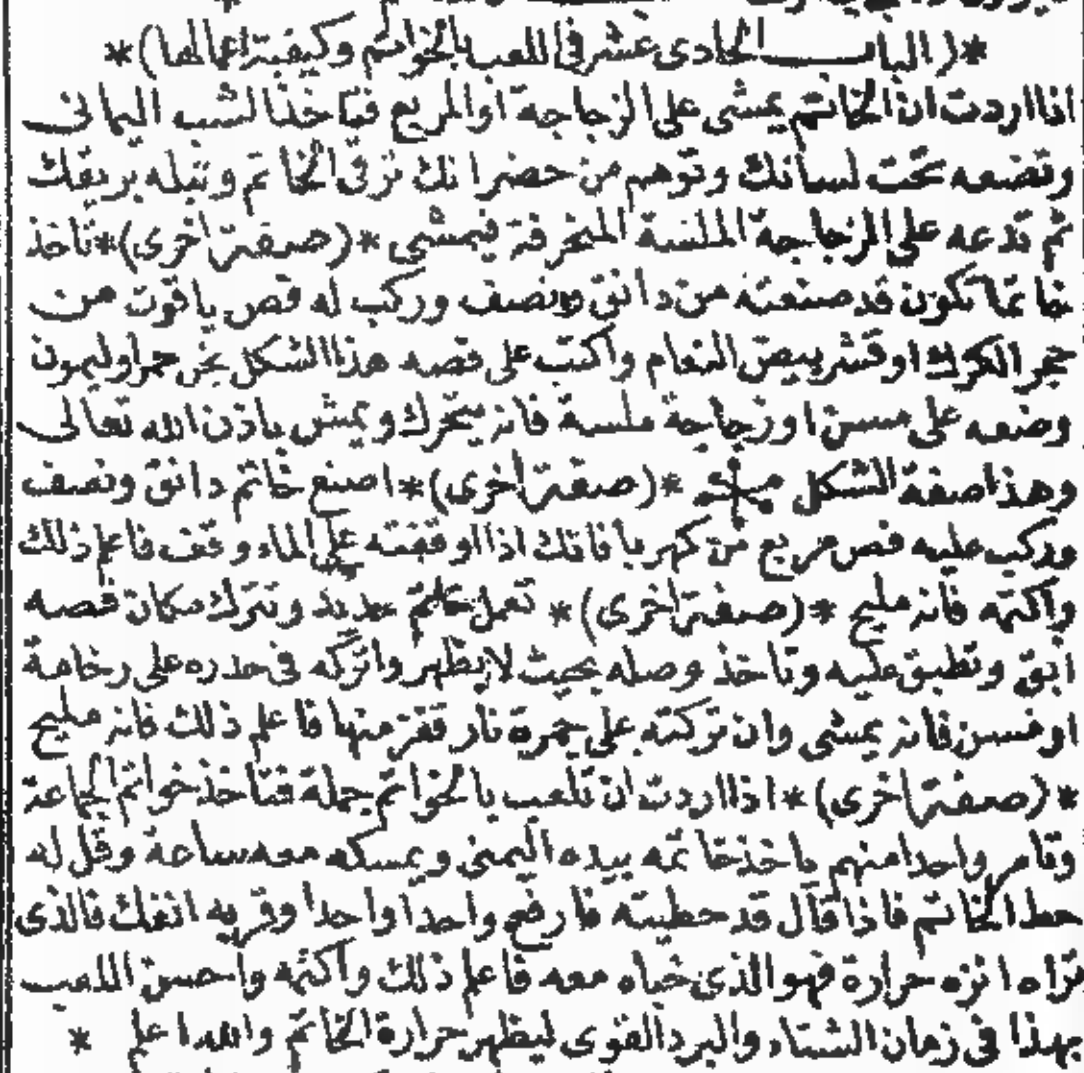 *(الباب الحادى عشر فى اللعب بالخواتم وكيفية اعمالها)*
اذا اردت ان الخاتم يمشى على الزجاجة او المريع فتاخذ الشب اليمانى
وتضعه تحت لسانك وتوهم من حضر انك ترقى الخاتم وتبله بريقك
ثم تدعه على الزجاجة الملسة المنحرفة فيمشى *(صفة اخرى)* تاخذ
خاتما تكون قد صنعته من دانق ونصف وركب له فص ياقوت من
حجر الكرك او قشر بيض النعام واكتب على فصه هذا الشكل
وضعه على مسن او زجاجة ملسة فانه يتحرك ويمش باذن الله تعالى
وهذا صفة الشكل *(صفة اخرى)* اصنع خاتم دانق ونصف
وركب عليه فص مربع من كهربا فانك اذا اوقفته على الماء وقف فاعلم ذلك
واكتمه فانه مليح *(صفة اخرى)* تعمل خاتم حديد وتترك مكان فصه
ابق وتطبق عليه وتاخذ وصله بحيث لا يظهر واتركه فى حدره على رخامة
او مسن فانه يمشى وان تركته على جمرة نار قفز منها فاعلم ذلك فانه مليح
*(صفة اخرى)* اذا اردت ان تلعب بالخواتم جملة فتاخذ خواتم الجماعة
وتامر واحدا منهم ياخذ خاتمه بيده اليمنى ويمسكه معه ساعة وقل له
حط الخاتم فاذا قال قد حطيته فارفع واحدا واحدا وقربه انفك فالذى
تراه انزه حرارة فهو الذى خباه معه فاعلم ذلك واكتمه واحسن اللعب
بهذا فى زمان الشتاء والبرد القوى ليظهر حرارة الخاتم والله اعلم *